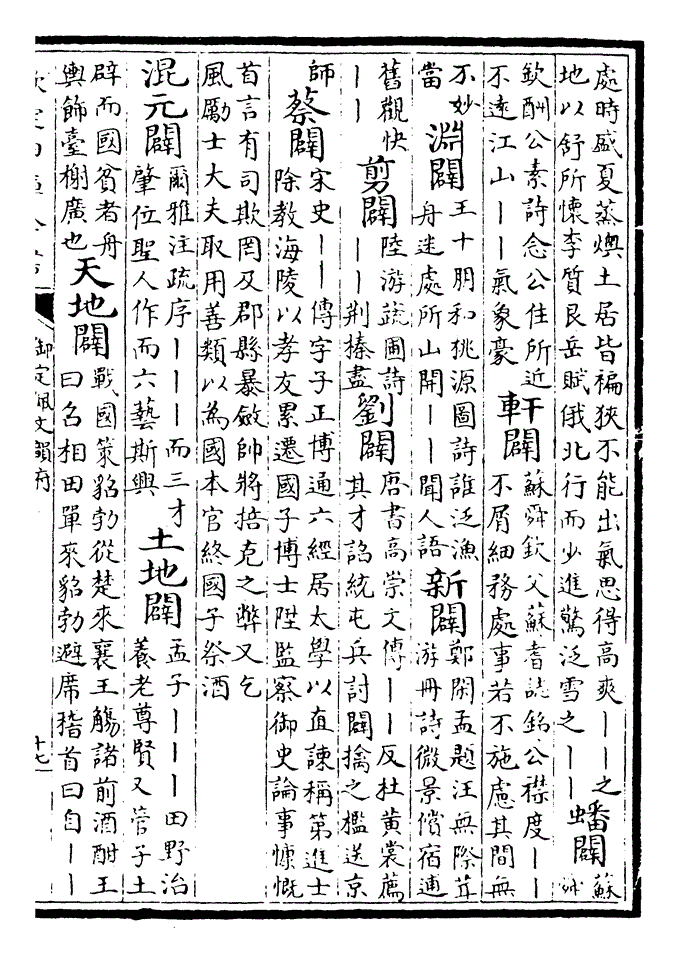 處時盛夏蒸燠土居皆褊狹不能出氣思得高爽丨丨之
地以舒所懷李質艮岳賦俄北行而少進驚泛雪之丨丨
蟠闢
蘇
欽酬公素詩念公住所近
不遠江山丨丨氣象豪
軒闢
蘇舜欽父蘇耆誌銘公襟度丨丨
不屑細務處事若不施慮其間無
不妙
當
淵闢
王十朋和桃源圖詩誰泛漁
舟迷處所山開丨丨聞人語
新闢
鄭閑孟題汪無際茸
游冊詩微景償宿逋
舊觀快
丨丨
剪闢
陸游蔬圃詩
丨丨荆榛盡
劉闢
唐書高崇文傳丨丨反杜黃裳薦
其才詔統屯兵討闢擒之檻送京
師
蔡闢
宋史丨丨傳字子正博通六經居太學以直諫稱第進士
除教海陵以孝友累遷國子博士陞監察御史論事慷慨
首言有司欺罔及郡縣暴斂帥將掊克之弊又乞
風厲士大夫取用善類以為國本官終國子祭酒
混元闢
爾雅注疏序丨丨丨而三才
肇位聖人作而六藝斯興
土地闢
孟子丨丨丨田野治
養老尊賢又管子土
辟而國貧者舟
輿飾臺榭廣也
天地闢
戰國策貂勃從楚來襄王觴諸前酒酣王
曰召相田單來貂勃避席稽首曰自丨丨
御定佩文韻府
十七